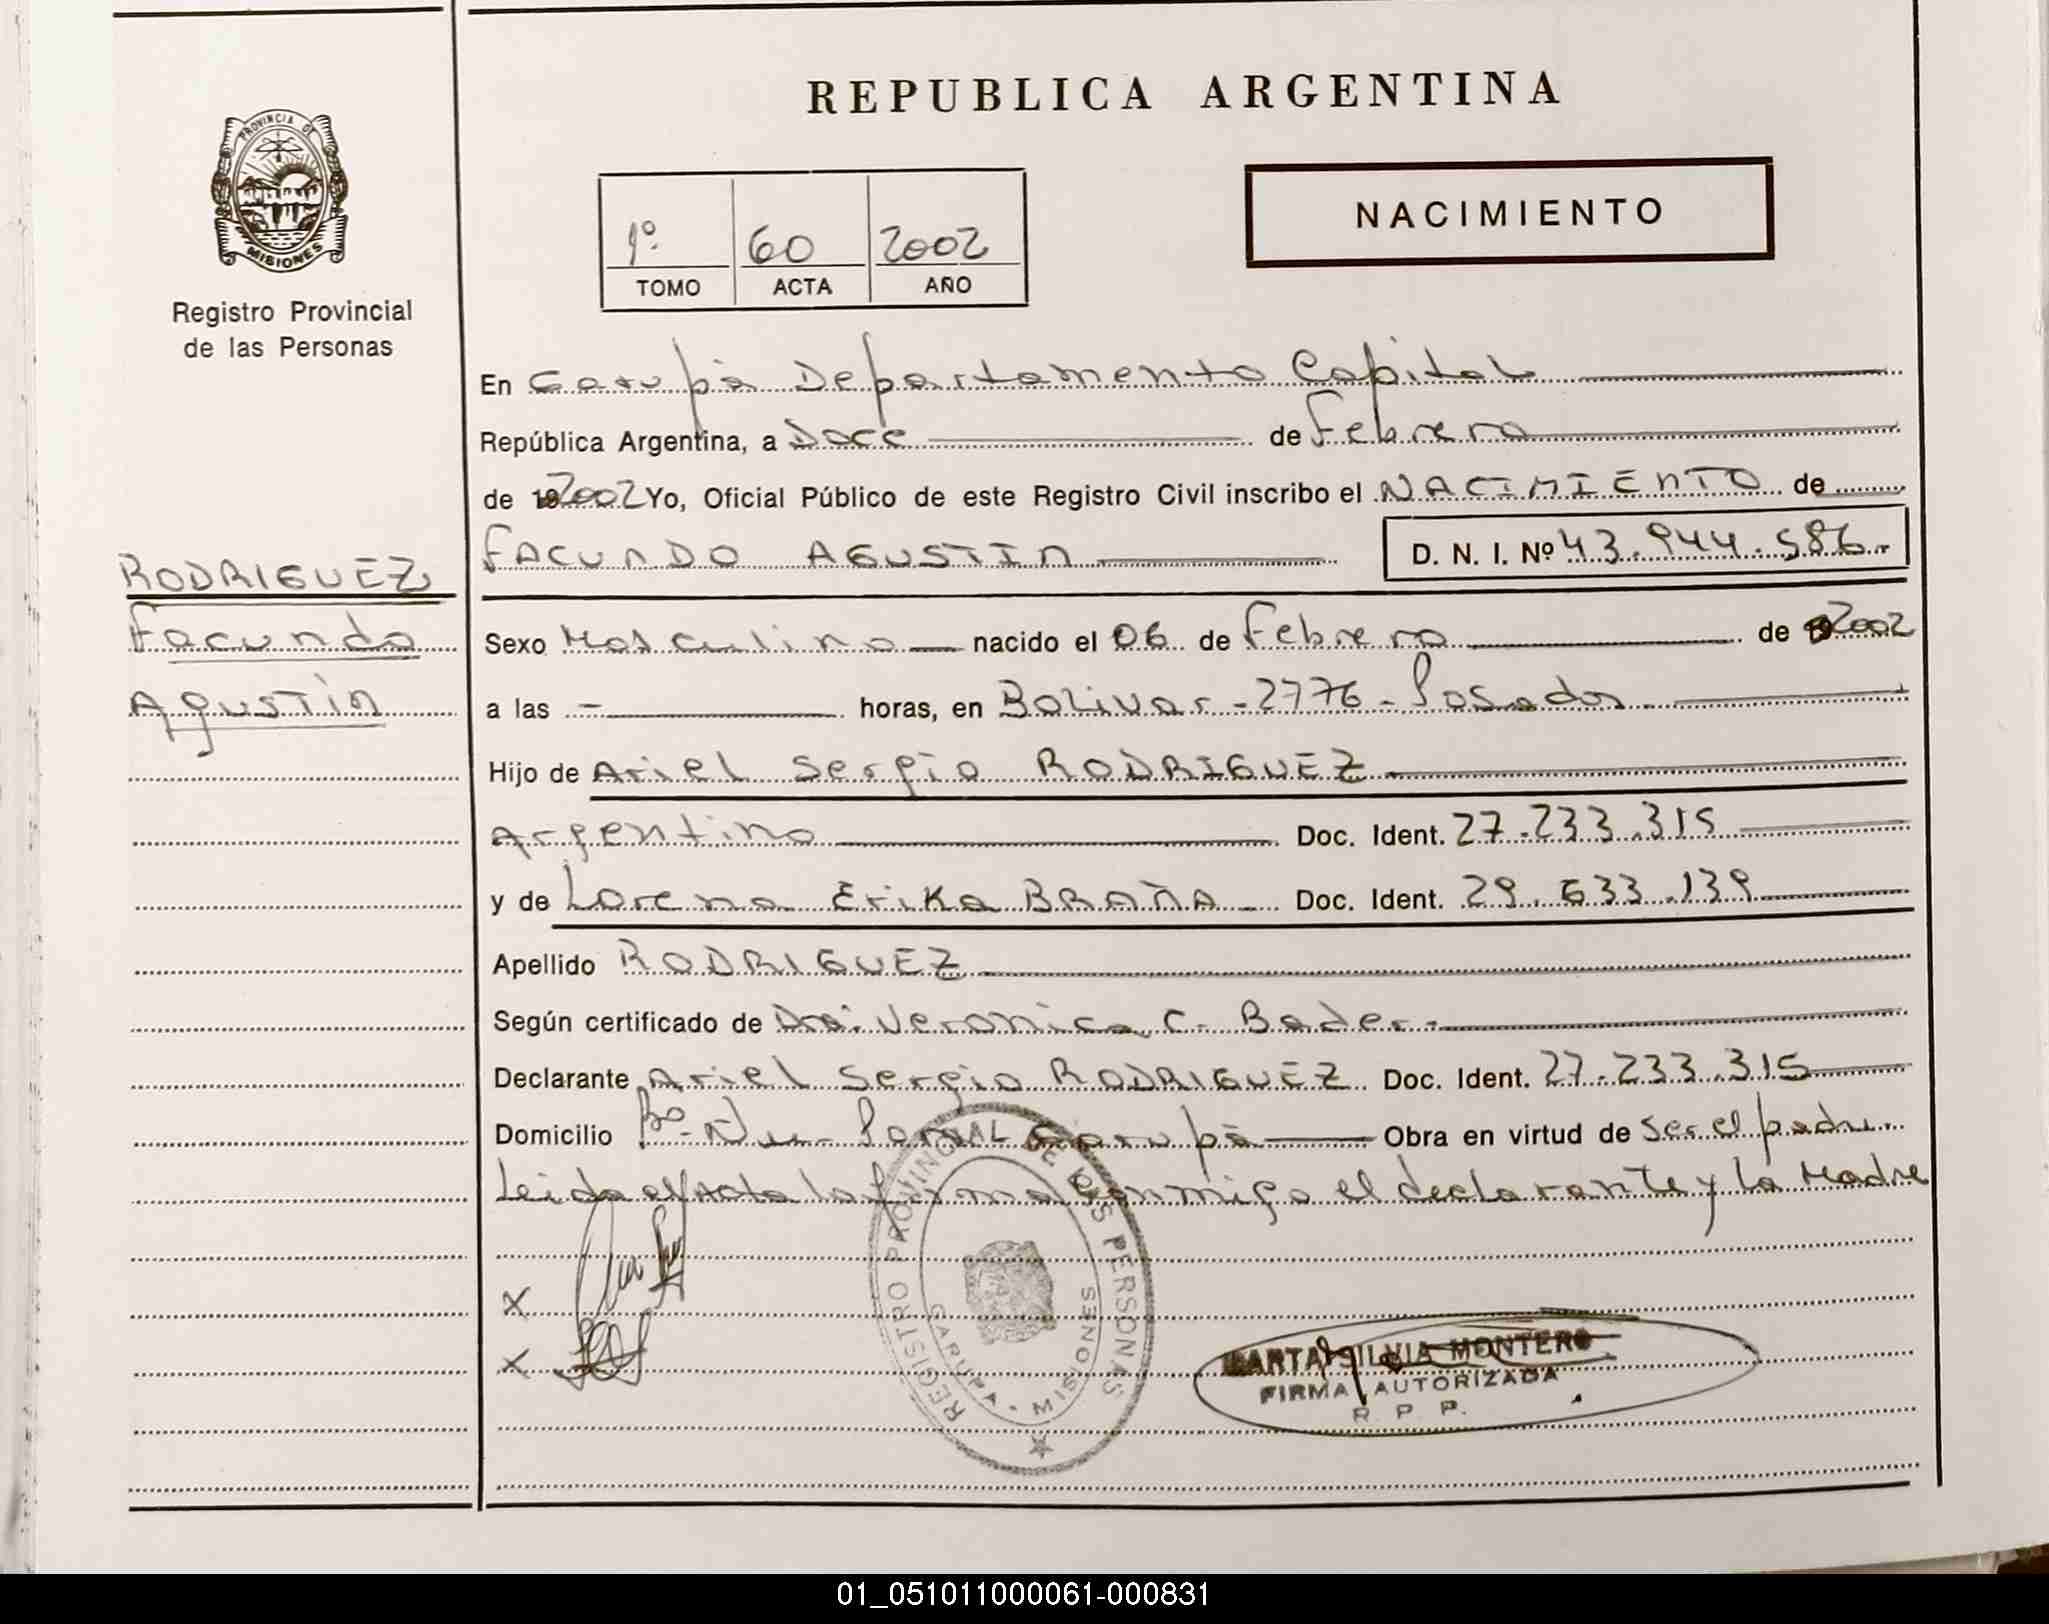 REPUBLICA ARGENTINA
PROVINCIA DE
MISIONES
Registro Provincial
de las Personas
1º 60 2002
TOMO ACTA AÑO
NACIMIENTO
En Garupá Departamento Capital
República Argentina, a Doce de Febrero
de 2002 Yo, Oficial Público de este Registro Civil inscribo el NACIMIENTO de
FACUNDO AGUSTIN D. N. I. Nº 43.944.586.-
RODRIGUEZ
Facundo
Agustín
Sexo Masculino nacido el 06 de Febrero de 2002
a las - horas, en Bolivar - 2776 - Posadas
Hijo de Ariel Sergio RODRIGUEZ
Argentino Doc. Ident. 27.233.315
y de Lorena Erika BRAÑA Doc. Ident. 29.633.139
Apellido RODRIGUEZ
Según certificado de Dra. Veronica C. Bader.-
Declarante Ariel Sergio RODRIGUEZ Doc. Ident. 27.233.315
Domicilio Bº Garupá Obra en virtud de ser el padre
Leida el Acta la firma conmigo el declarante y la Madre
REGISTRO PROVINCIAL DE LAS PERSONAS
GARUPA - MISIONES
X
X
MARTA SILVIA MONTERO
FIRMA AUTORIZADA
R. P. P.
01_051011000061-000831